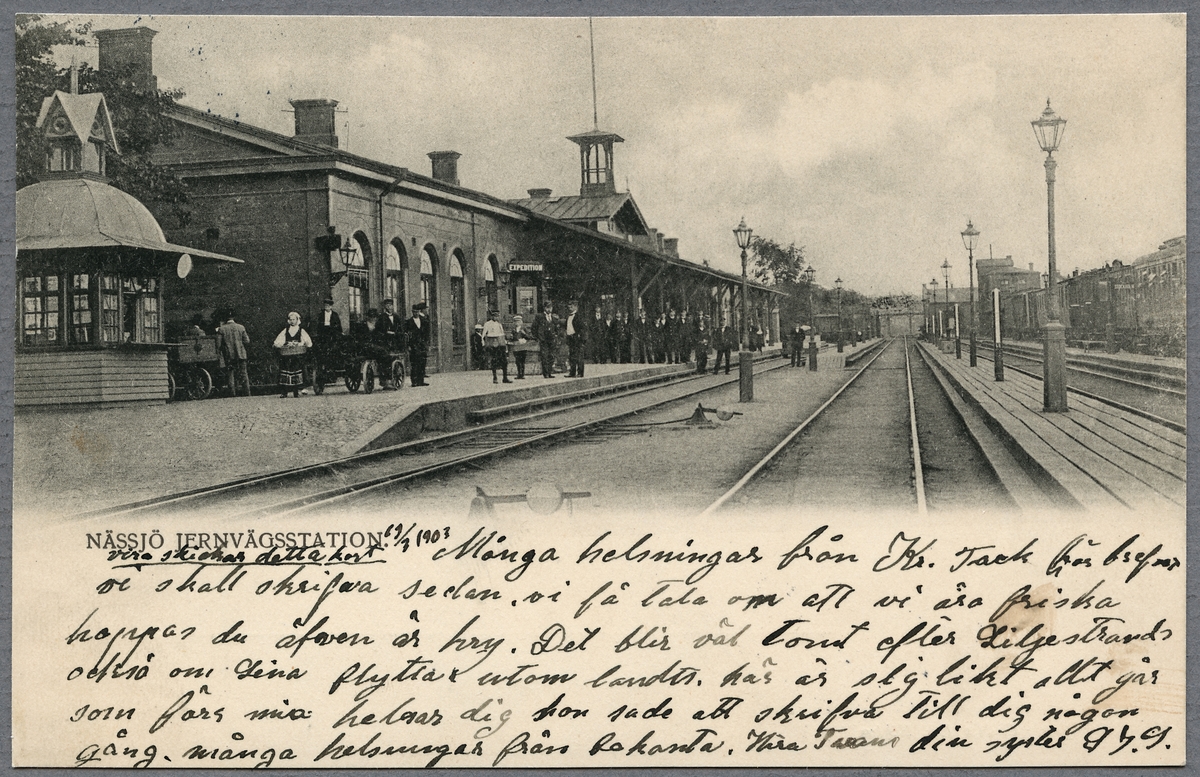 EXPEDITION
NÄSSJÖ JERNVÄGSSTATION. 19/3 1903
skickar detta kort
Många helsningar från Kr. Tack för bref
vi skall skrifva sedan. vi få tala om att vi äro friska
hoppas du äfven är kry. Det blir väl tomt efter Liljestrands
också om Lina flyttar utom landts. här är sig likt allt går
som förr mia helsar dig hon sade att skrifva till dig någon
gång. många helsningar från bekanta. din syster